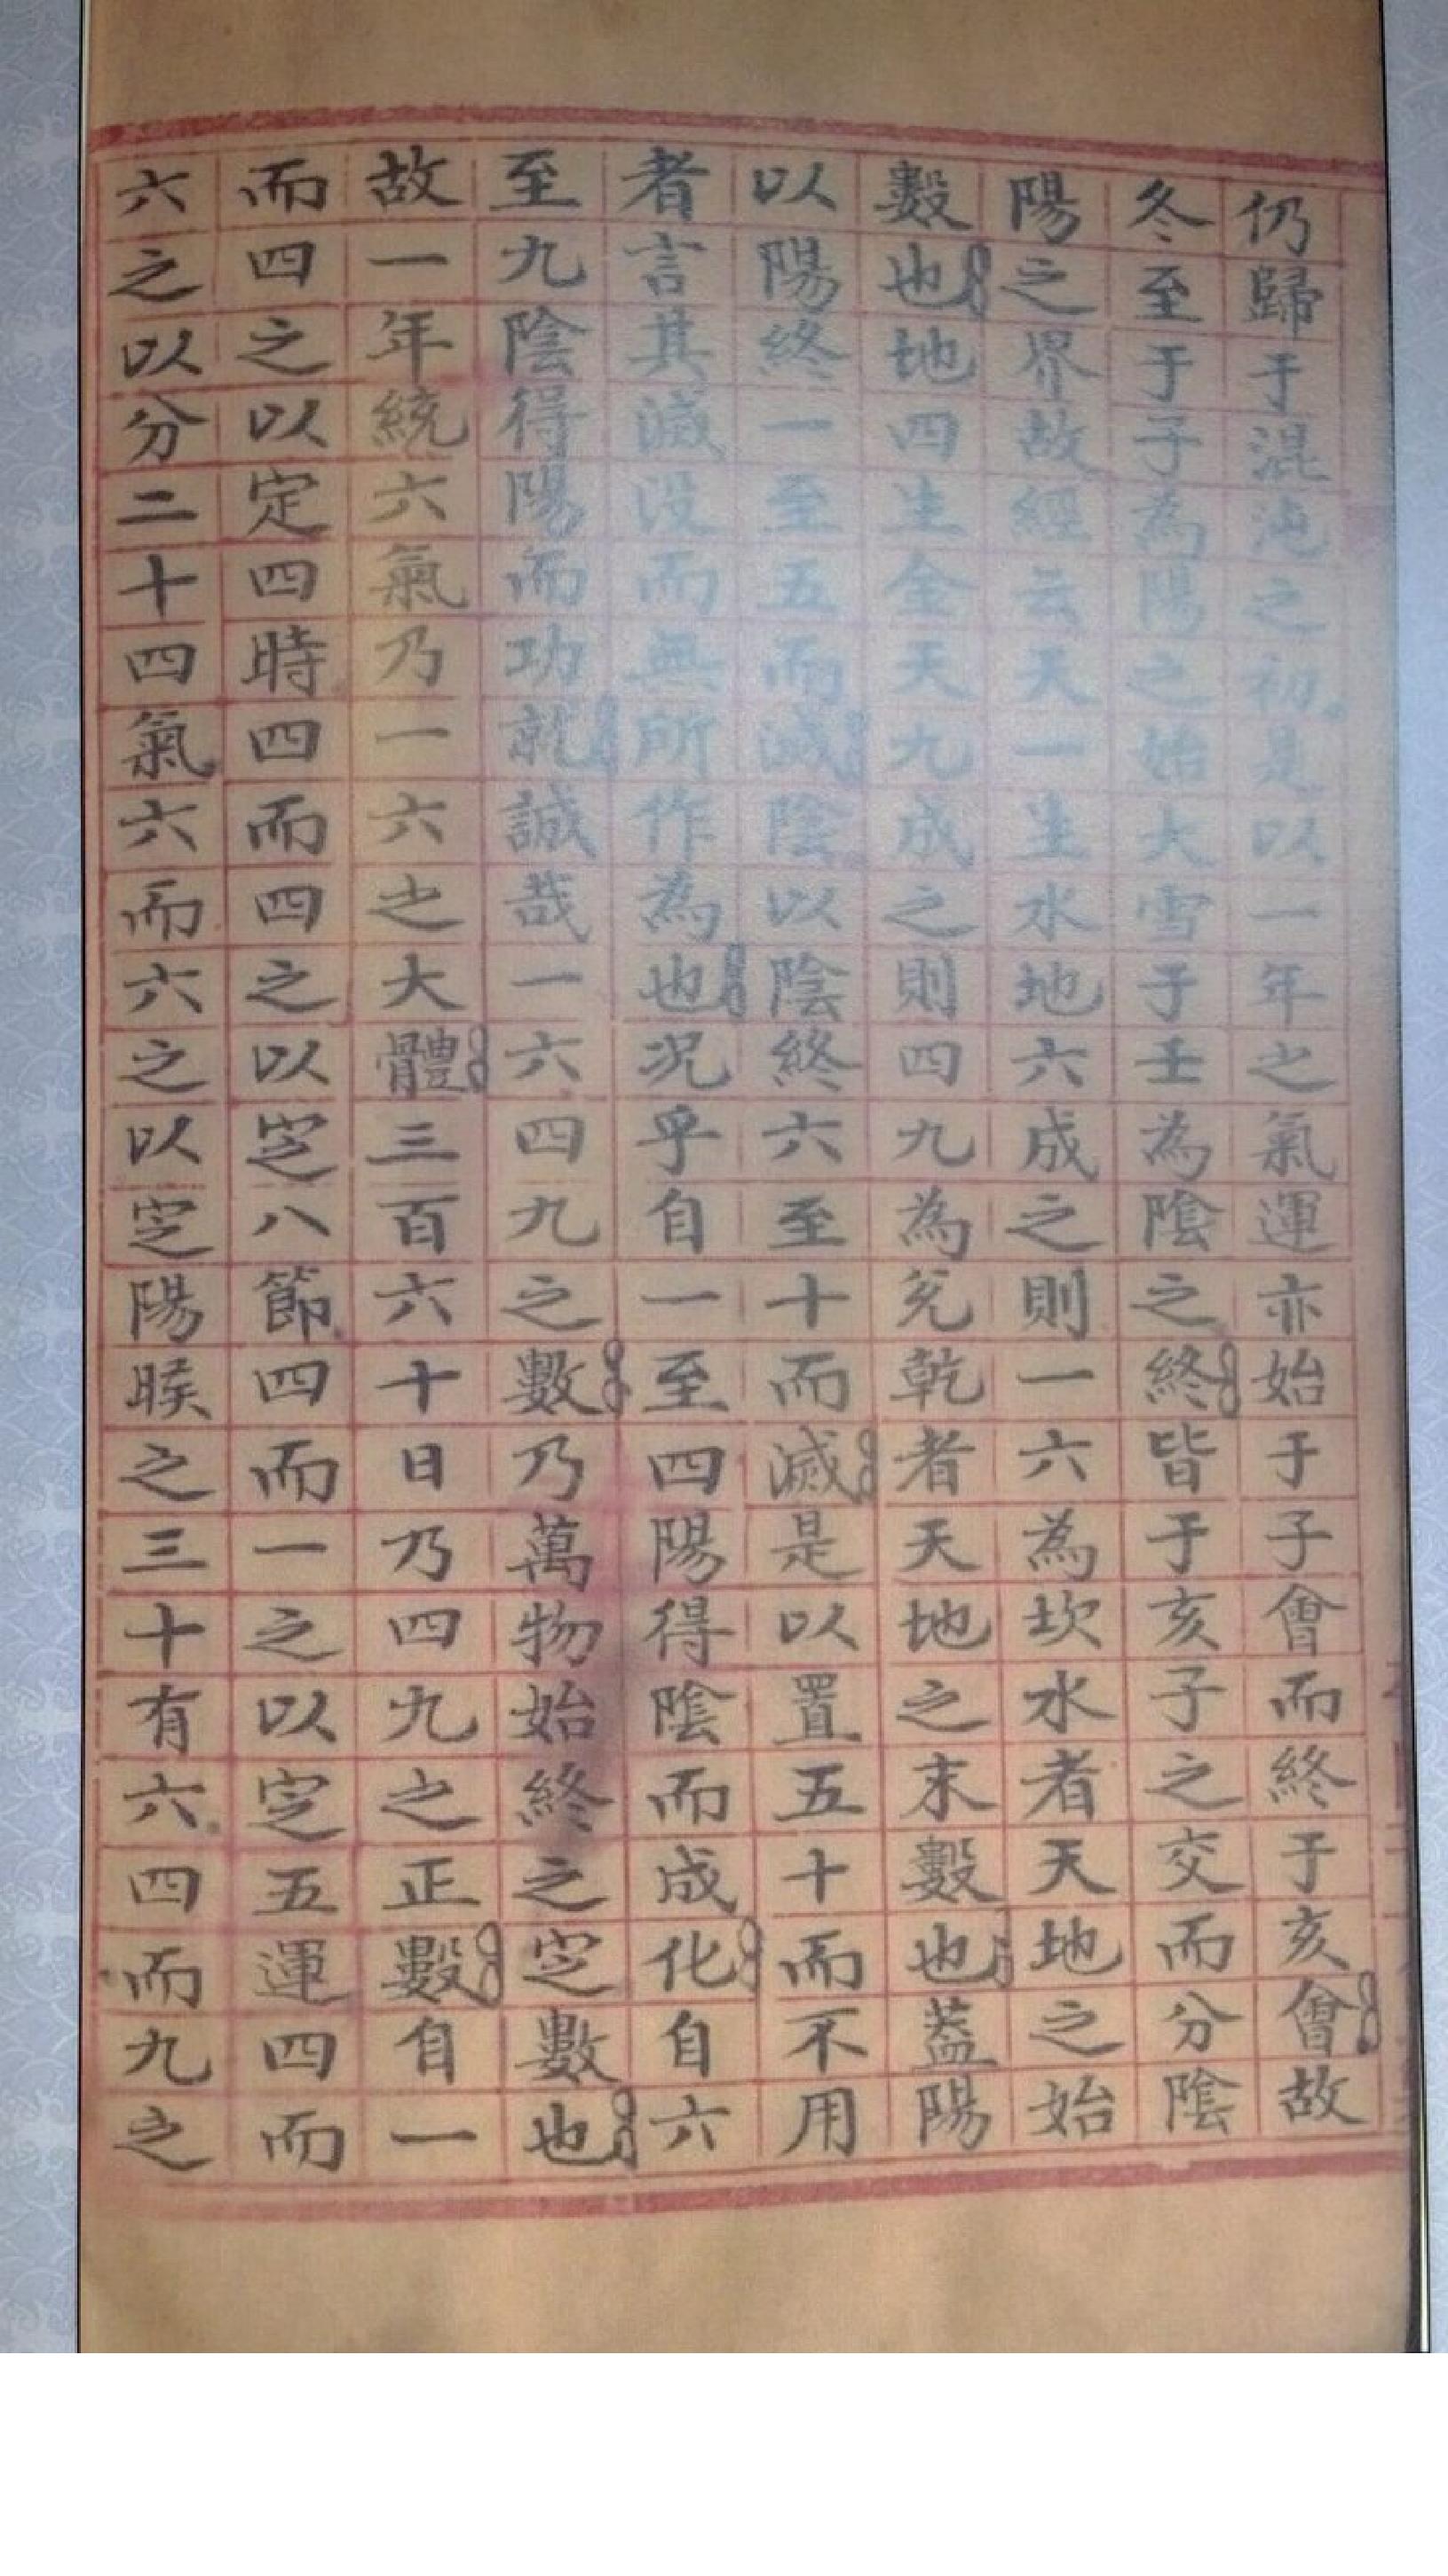 仍歸于混沌之初是以一年之氣運亦始于子會而終于亥會故
冬至于子為陽之始大雪于壬為陰之終皆于亥子之交而分陰
陽之界故經云天一生水地六成之則一六為坎水者天地之始
數也地四生金天九成之則四九為兊乾者天地之末數也蓋陽
以陽終一至五而滅陰以陰終六至十而滅是以置五十而不用
者言其滅没而無所作為也况乎自一至四陽得陰而成化自六
至九陰得陽而功就誠哉一六四九之數乃萬物始終之定數也
故一年統六氣乃一六之大體三百六十日乃四九之正數自一
而四之以定四時四而四之以定八節四而一之以定五運四而
六之以分二十四氣六而六之以定陽候之三十有六四而九之